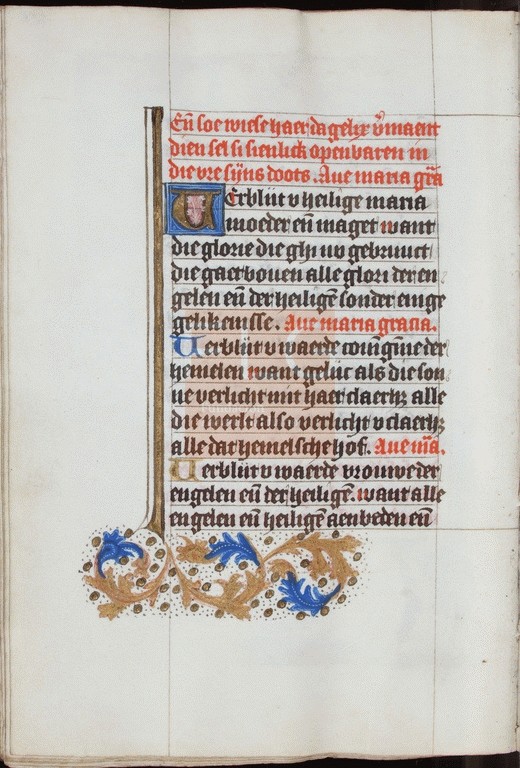 Eñ soe wiese haer dagelix v̄maent
dien sel si sienlick openbaren in
die vre sijns doots. Aue maria gr̄a
VErblijt v heilige maria
moeder eñ maget want
die glorie die ghi nv gebruuct
die gaet bouen alle glori der en
gelen eñ der heiligē sonder enige
gelikenisse. Aue maria gracia.
Verblijt v waerde coningīne der
hemelen want gelijc als die son
ne verlicht mit haer claerhʒ alle
die werlt also verlicht v claerhʒ
alle dat hemelsche hof. Aue m̄a.
Verblijt v waerde vrouwe der
engelen eñ der heiligē. want alle
engelen eñ heiligē aenbeden eñ